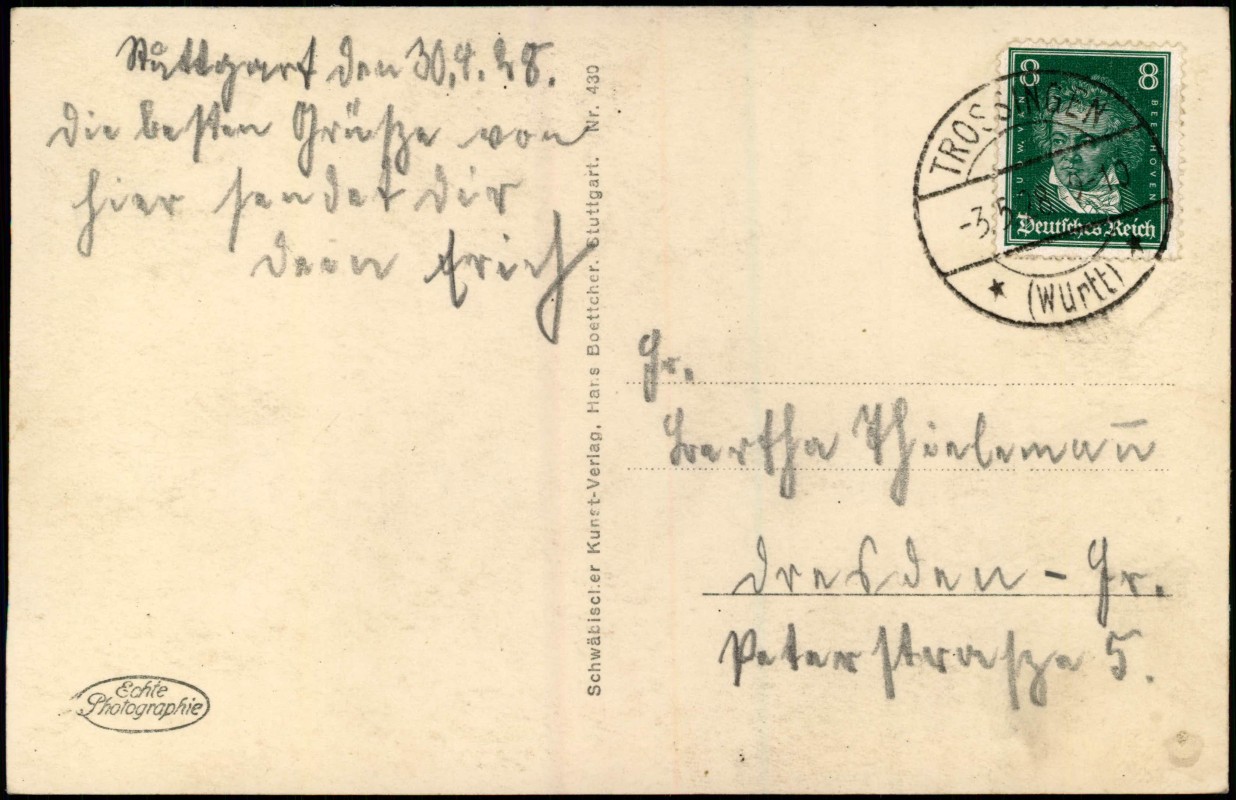 Stuttgart den 30.4.28.
Die besten Grüsze von
hier sendet Dir
Dein Erich
Schwäbischer Kunst-Verlag, Hans Boettcher, Stuttgart. Nr. 430
8 8
L. W. VAN BEETHOVEN
Deutsches Reich
TROSSINGEN
-3.5.28. 9-10
(Württ)
Fr.
Bertha Thielemann̄
Dresden - Gr.
Peterstrasze 5.
Echte
Photographie